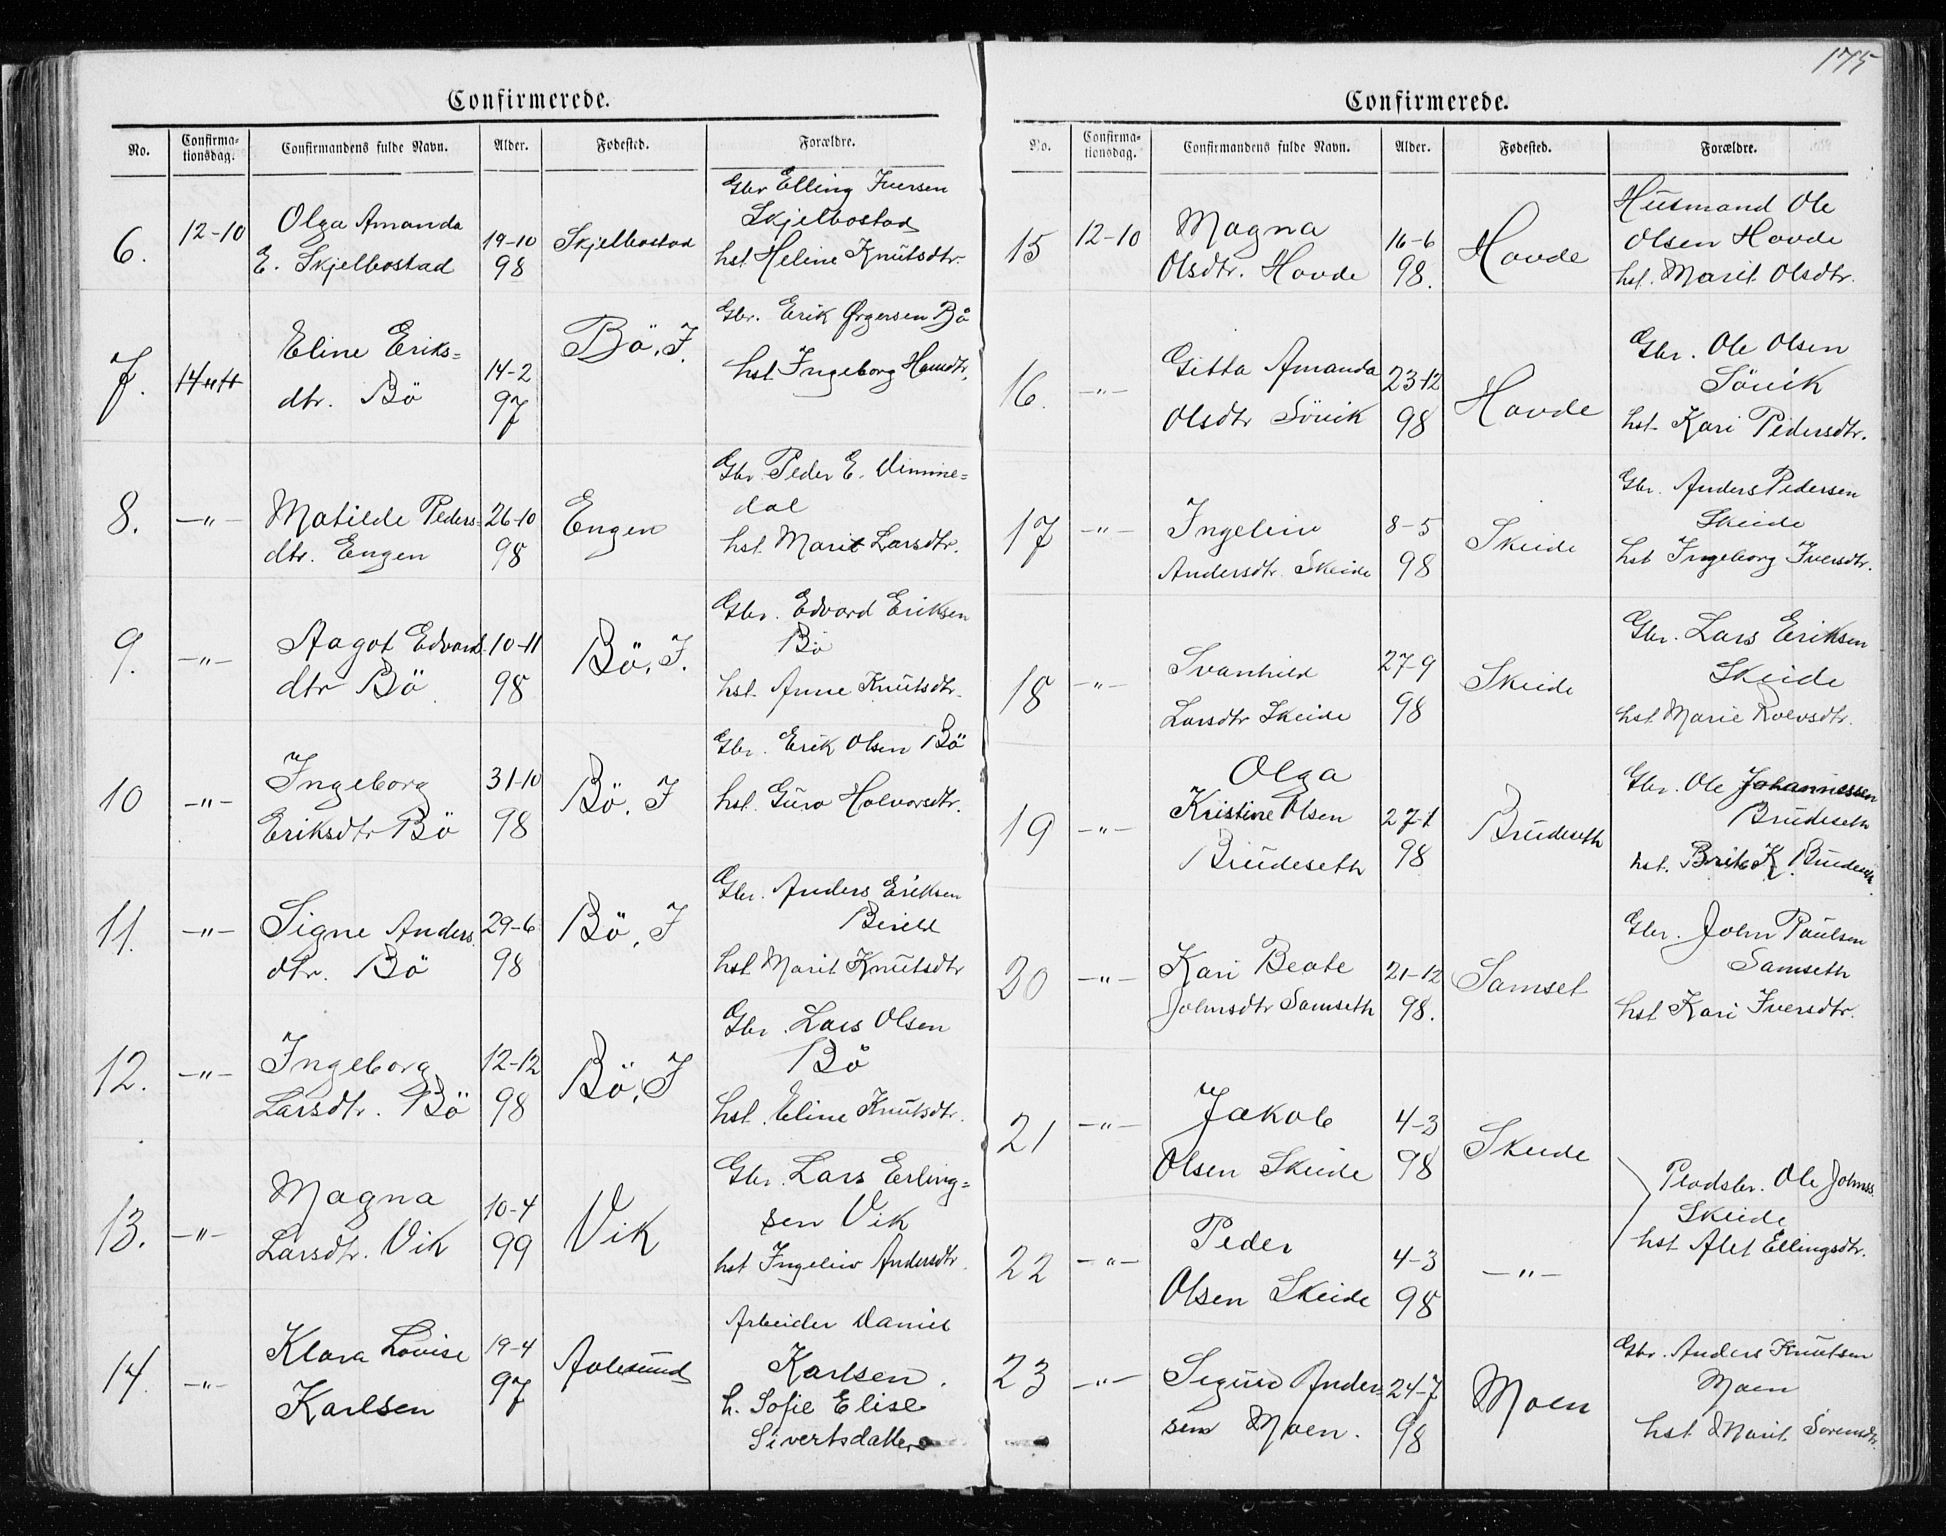 175
Confirmerede.
No. Confirma-
tionsdag. Confirmandens fulde Navn. Alder. Fødested. Forældre.
6. 12-10 Olga Amanda
E. Skjelbostad 19-10
98 Skjelbostad Gbr Elling Iversen
Skjelbostad
hst Heline Knutsdtr.
7. Eline Eriks-
dtr. Bö 14-2
97 Bö, I. Gbr. Erik Ørgersen Bö
hst Ingeborg
8. -"- Matilde Peders-
dtr. Engen 26-10
98 Engen Gbr. Peder E. Vimme-
dal
hst. Marit Larsdtr.
9. -"- Aagot Edvards.
dtr Bö 10-11
98 Bö, I. Gbr. Edvard Eriksen
Bö
hst. Anne Knutsdtr.
10 -"- Ingeborg
Eriksdtr Bö 31-10
98 Bö, I Gbr. Erik Olsen Bö
hst. Guro Halvorsdtr.
11. -"- Signe Anders.
dtr. Bö 29-6
98 Bö, I Gbr. Anders Eriksen
hst Marit Knutsdtr
12. -"- Ingeborg
Larsdtr. Bö 12-12
98 Bö, I Gbr. Lars Olsen
Bö
hst. Eline Knutsdtr.
13. -"- Magna
Larsdtr. Vik 10-4
99 Vik Gbr. Lars Erling-
sen Vik
hst Ingeliv Andersdtr.
14. -"- Klara Lovise
Karlsen 19-4
97 Aalesund Arbeider Daniel
Karlsen.
h. Sofie Elise
Sivertsdatter
Confirmerede.
No. Confirma-
tionsdag. Confirmandens fulde Navn. Alder. Fødested. Forældre.
15 12-10 Magna
Olsdtr. Hovde 16-6
98. Hovde Husmand Ole
Olsen Hovde
hst. Marit Olsdtr.
16. -"- Gitta Amanda
Olsdtr Sövik 23-12
98 Hovde Gbr. Ole Olsen
Sövik
hst Kari Pedersdtr.
17 -"- Ingeliv
Andersdtr. Skeide 8-5
98 Skeide Gbr. Anders Pedersen
Skeide
hst Ingeborg Iversdtr.
18 -"- Svanhild
Larsdtr Skeide 27-9
98 Skeide Gbr. Lars Eriksen
Skeide
hst. Marie Rolvsdtr.
19 -"- Olga
Kristine Olsen
Brudeseth 27-1
98 Brudeseth Gbr. Ole Johannessen
Brudeseth
hst. Brit K.
20 -"- Kari Beate
Johnsdtr Samseth 21-12
98. Samset Gbr. John Paulsen
Samseth
hst Kari Iversdtr.
21 -"- Jakob
Olsen Skeide 4-3
98 Skeide
Pladsbr. Ole Johnss.
Skeide
hst Alet Ellingsdtr.
22 -"- Peder
Olsen Skeide 4-3
98 -"-
23 -"- Sigurd Ander-
sen Moen. 24-7
98 Moen Gbr. Anders Knutsen
Moen
hst Marit Sörensdtr.